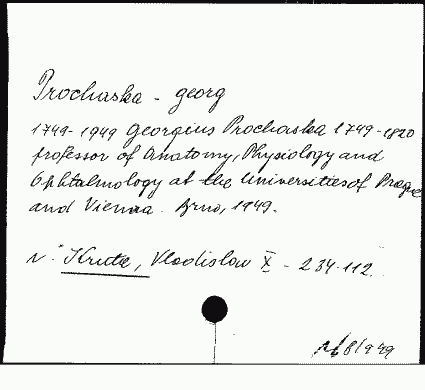 Prochaska - georg
1749-1949 Georgius Prochaska 1749-1820
professor of Anatomy, Physiology and
Ophtalmology at the Universities of Prague
and Vienna. Brno, 1949.
v. Kruta, Vladislaw X - 234.112.
8/949